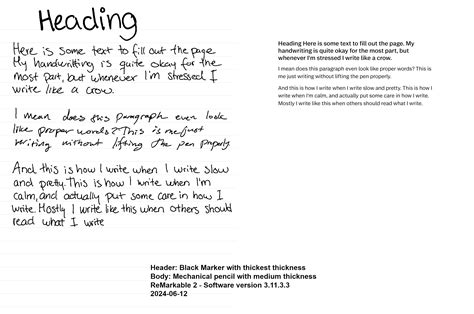 Heading
Here is some text to fill out the page.
My handwriting is quite okay for the
most part, but whenever I'm stressed I
write like a crow.
I mean does this paragraph even look
like proper words? This is me just
writing without lifting the pen properly.
And this is how I write when I write slow
and pretty. This is how I write when I'm
calm, and actually put some care in how I
write. Mostly I write like this when others should
read what I write
Heading Here is some text to fill out the page. My
handwriting is quite okay for the most part, but
whenever I'm stressed I write like a crow.
I mean does this paragraph even look like proper words? This is
me just writing without lifting the pen properly.
And this is how I write when I write slow and pretty. This is how I
write when I'm calm, and actually put some care in how I write.
Mostly I write like this when others should read what I write.
Header: Black Marker with thickest thickness
Body: Mechanical pencil with medium thickness
ReMarkable 2 - Software version 3.11.3.3
2024-06-12